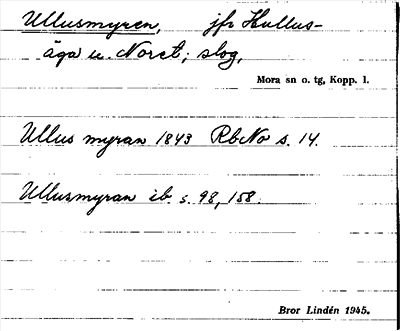 Ullusmyren, jfr Hullus-
äga u. Noret; slog.
Mora sn o. tg, Kopp. l.
Ullus myran 1843 RbNo s. 14.
Ullusmyran ib s. 98, 158.
Bror Lindén 1945.